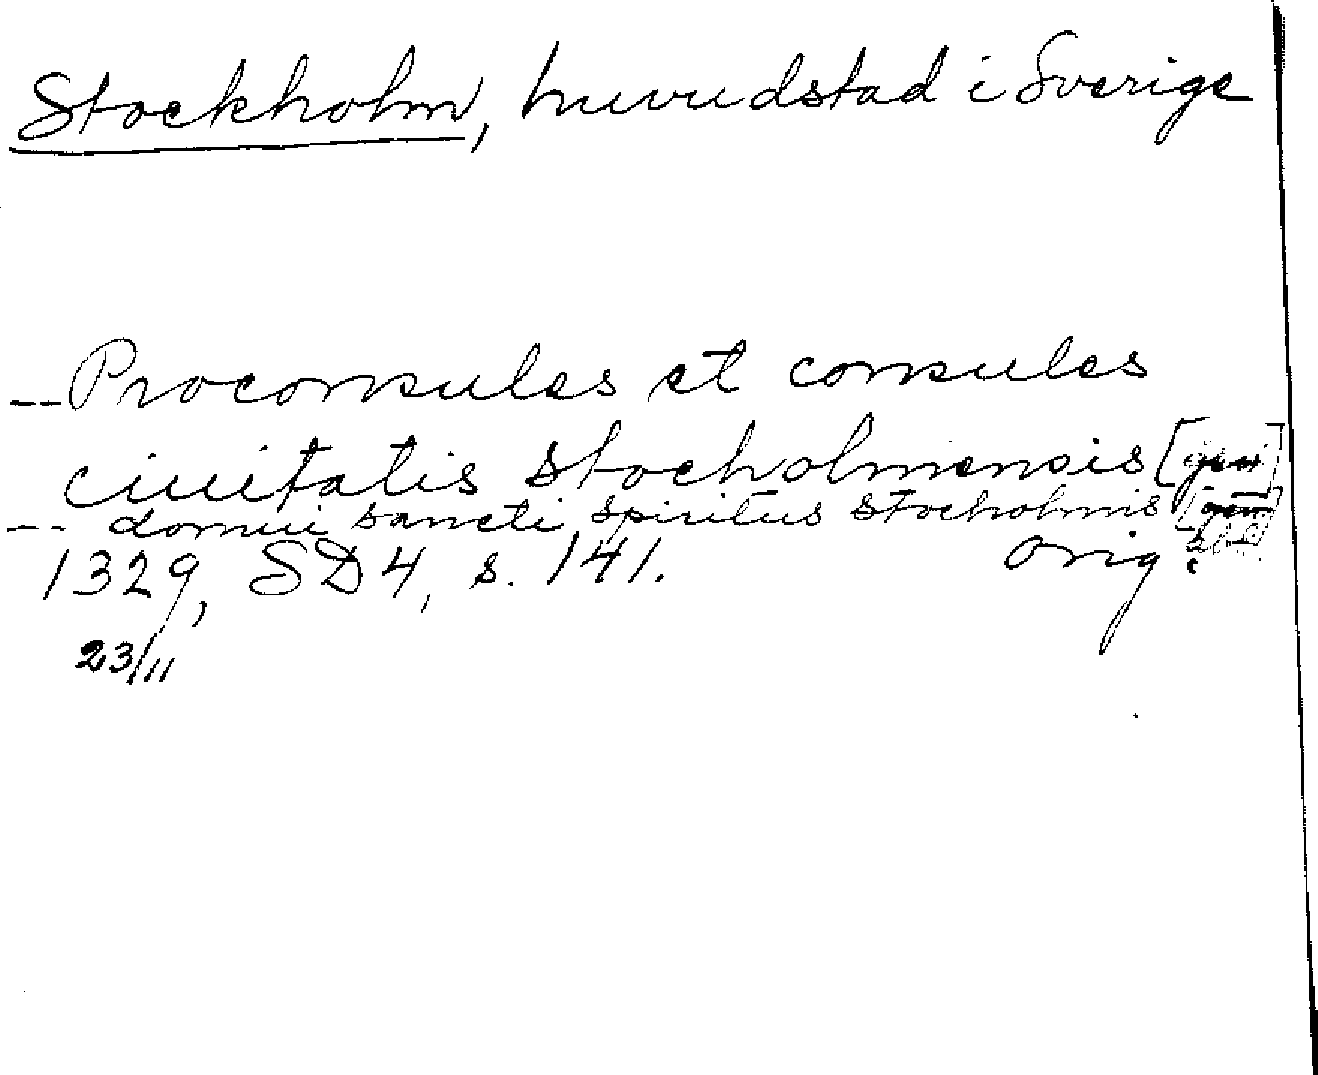 Stockholm, huvudstad i Sverige
-- Proconsules et consules
ciuitatis stocholmensis [gen]
-- domui sancti spiritus stocholmis
1329, SD4, s. 141. Orig.
23/11